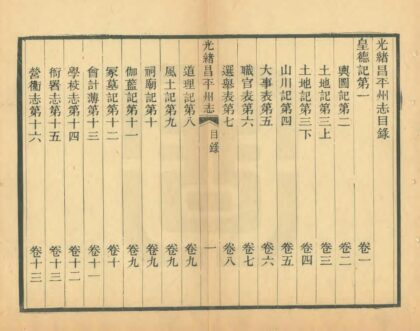 光緒昌平州志目錄
皇德記第一 卷一
輿圖記第二 卷二
土地記第三上 卷三
土地記第三下 卷四
山川記第四 卷五
大事表第五 卷六
職官表第六 卷七
選舉表第七 卷八
光緒昌平州志 目錄 一
道理記第八 卷九
風土記第九 卷九
祠廟記第十 卷九
伽藍記第十一 卷十
冢墓記第十二 卷十
會計簿第十三 卷十一
學校志第十四 卷十二
衙署志第十五 卷十三
營衛志第十六 卷十三